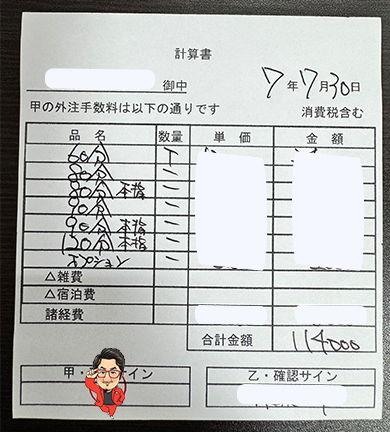 計算書
御中 7年7月30日
甲の外注手数料は以下の通りです 消費税含む
品名 数量 単価 金額
60分 T
80分 一
80分 本指 一
90分 一
90分 本指 一
120分 本指 一
オプション 一
△雑費
△宿泊費
諸経費
合計金額 114000
甲・ イン 乙・確認サイン